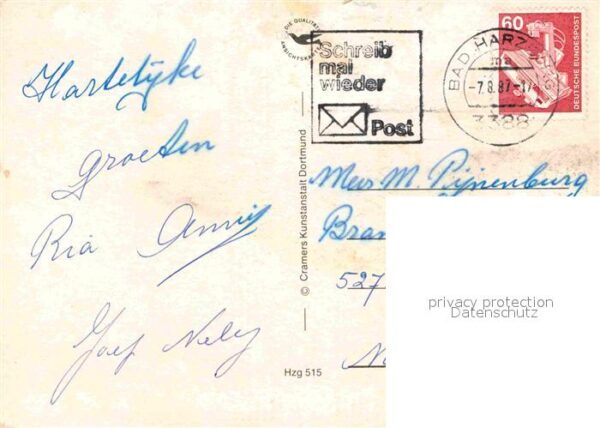 Hartelijke
Groeten
Ria Anny
Joep Nelly
DIE QUALITÄTS
ANSICHTSKARTE
Schreib
mal
wieder
Post
© Cramers Kunstanstalt Dortmund
Hzg 515
60
DEUTSCHE BUNDESPOST
BAD HARZ
-7.8.87-17
3388
Mevr M. Pijnenburg
Bran
527
privacy protection
Datenschutz